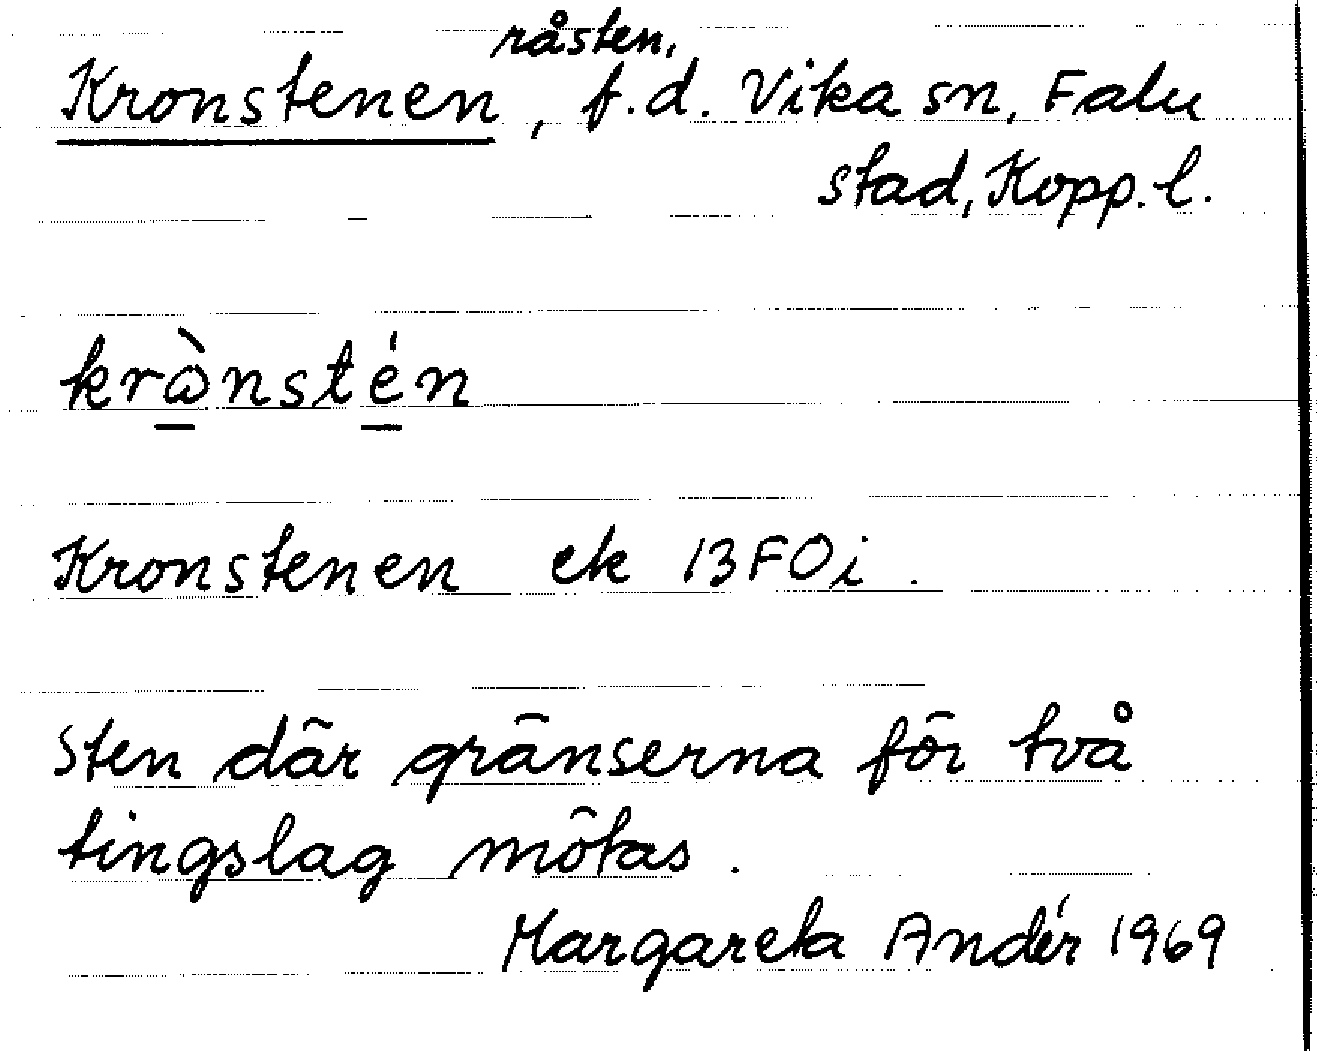 Kronstenen, råsten, f.d. Vika sn, Falu
stad, Kopp. l.
kr̀ω̲nsté̲n
Kronstenen ek 13FOi.
Sten där gränserna för två
tingslag mötas.
Margareta Andér 1969